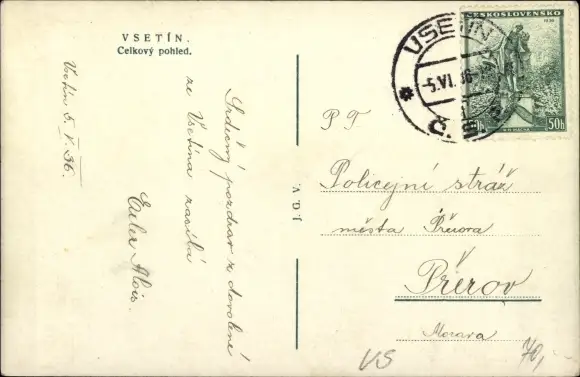 VSETÍN.
Celkový pohled.
Vsetín 5. VI. 36.
Srdečný pozdrav z dovolené
ze Vsetína zasílá
Alois.
J.G.V.
VSETÍN
-5.VI.36-
Č.S.
ČESKOSLOVENSKO
1936
50h
P T
Policejní stráž
města Přerova
Přerov
Morava
VS
70,-